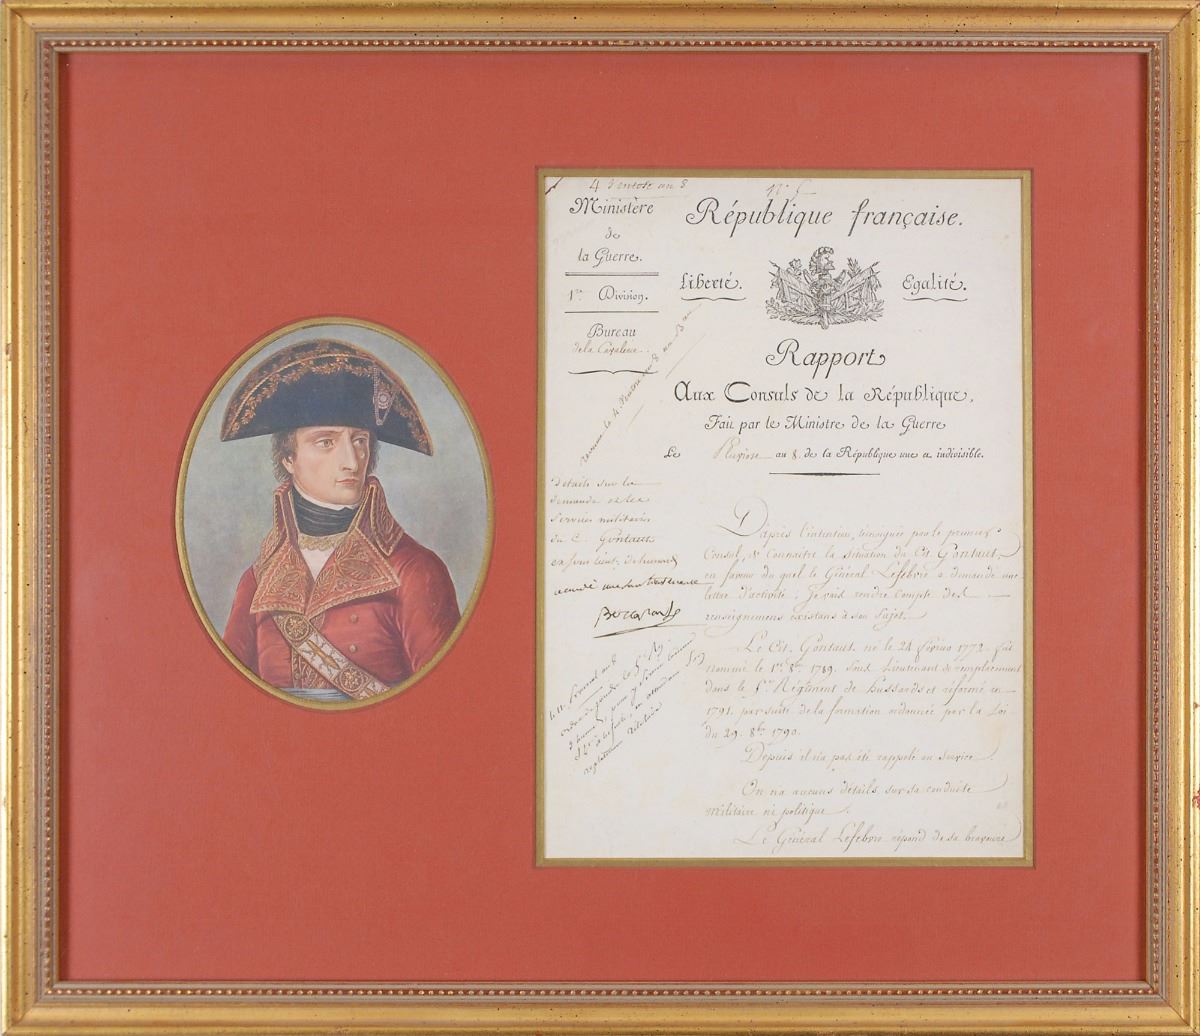 4 Ventose an 8
N° 5
Ministère
de
la Guerre.
1re Division.
Bureau
de la Cavalerie.
République française.
Liberté. Egalité.
Rapport
Aux Consuls de la République,
Fait par le Ministre de la Guerre
Le Pluviose an 8. de la République une et indivisible.
le 4 Ventose an 8
Détails sur la
demande et les
services militaires
du C. Gontaut
accordé une sous lieutenance
Bonaparte
D'après l'intention, témoignée par le premier
Consul, de Connaitre la situation du Cit. Gontaut,
en faveur du quel le Général Léfebvre a demandé une
lettre d'activité. Je vais rendre Compte des
renseignemens existans à son Sujet.
Le Cit. Gontaut né le 24 février 1772. fut
nommé le 1er 8bre 1789. Sous Lieutenant de remplacement
dans le 5me Régiment de hussards et réformé en
1791. par suite de la formation ordonnée par la Loi
du 29. 8bre 1790.
Depuis il n'a pas été rappelé au service.
On n'a aucuns détails sur sa conduite
militaire ni politique.
Le Général Léfebvre répond de sa bravoure